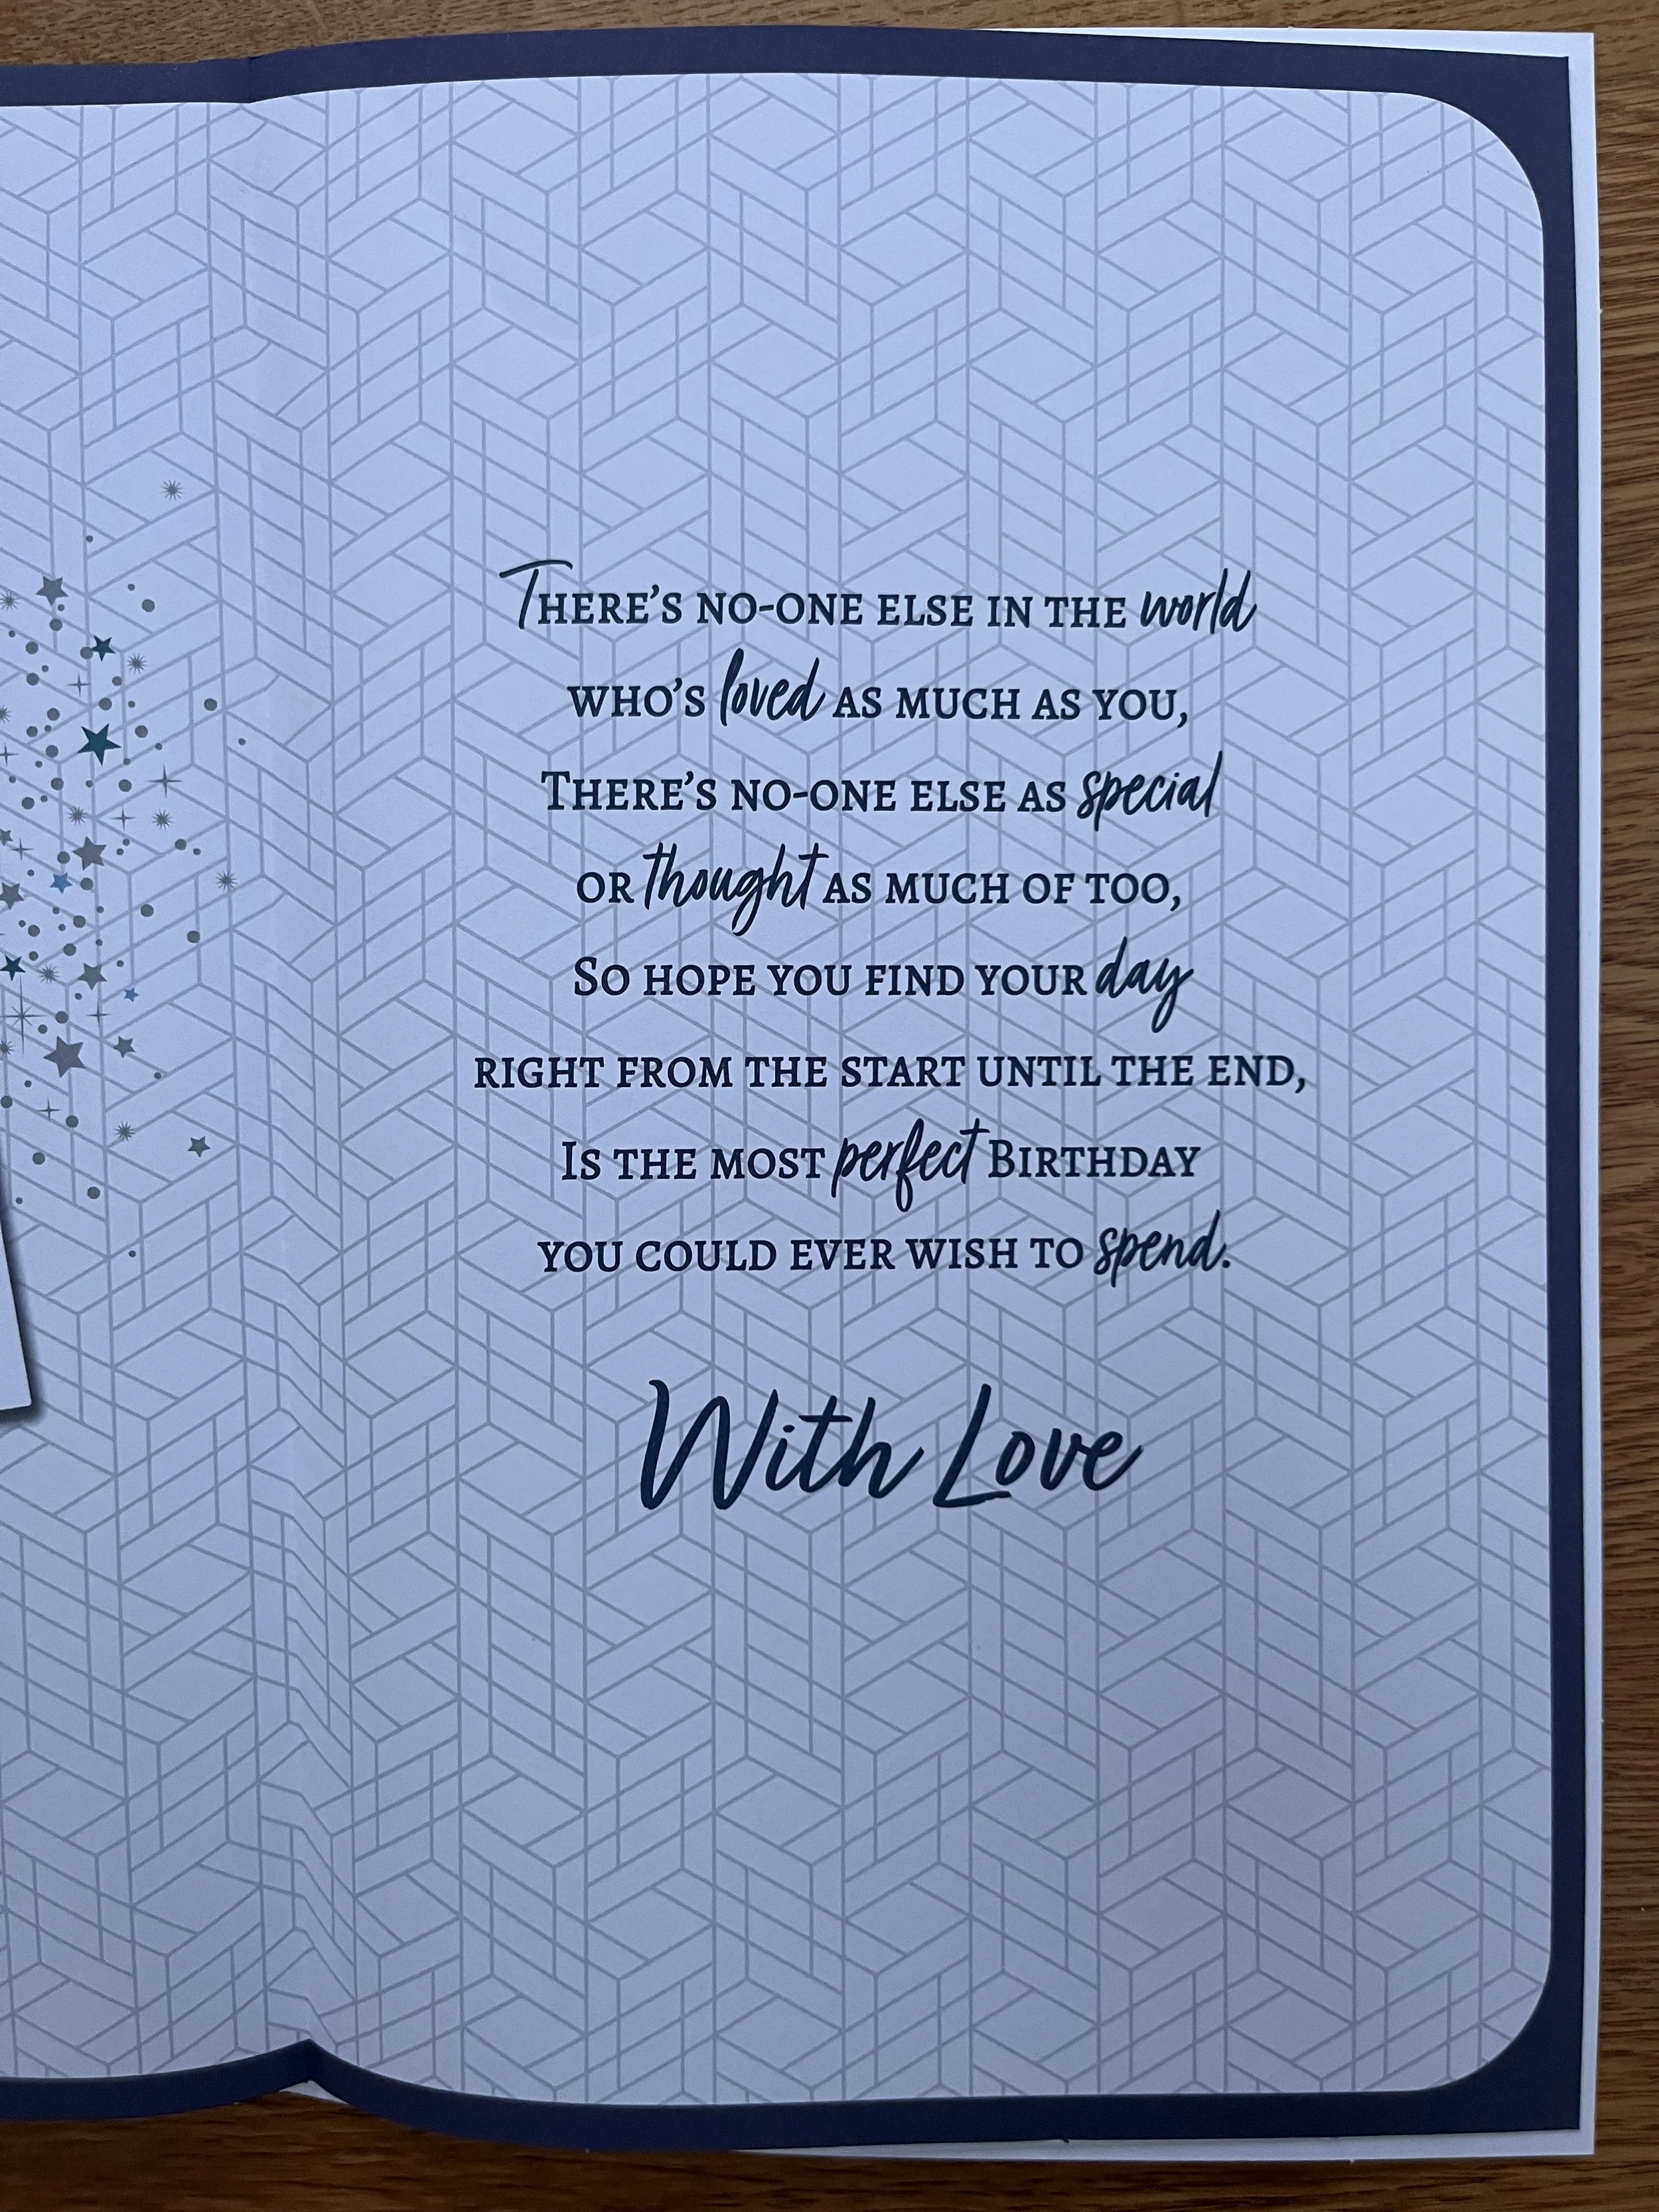 There's no-one else in the world
who's loved as much as you,
There's no-one else as special
or thought as much of too,
So hope you find your day
right from the start until the end,
Is the most perfect Birthday
you could ever wish to spend.
With Love